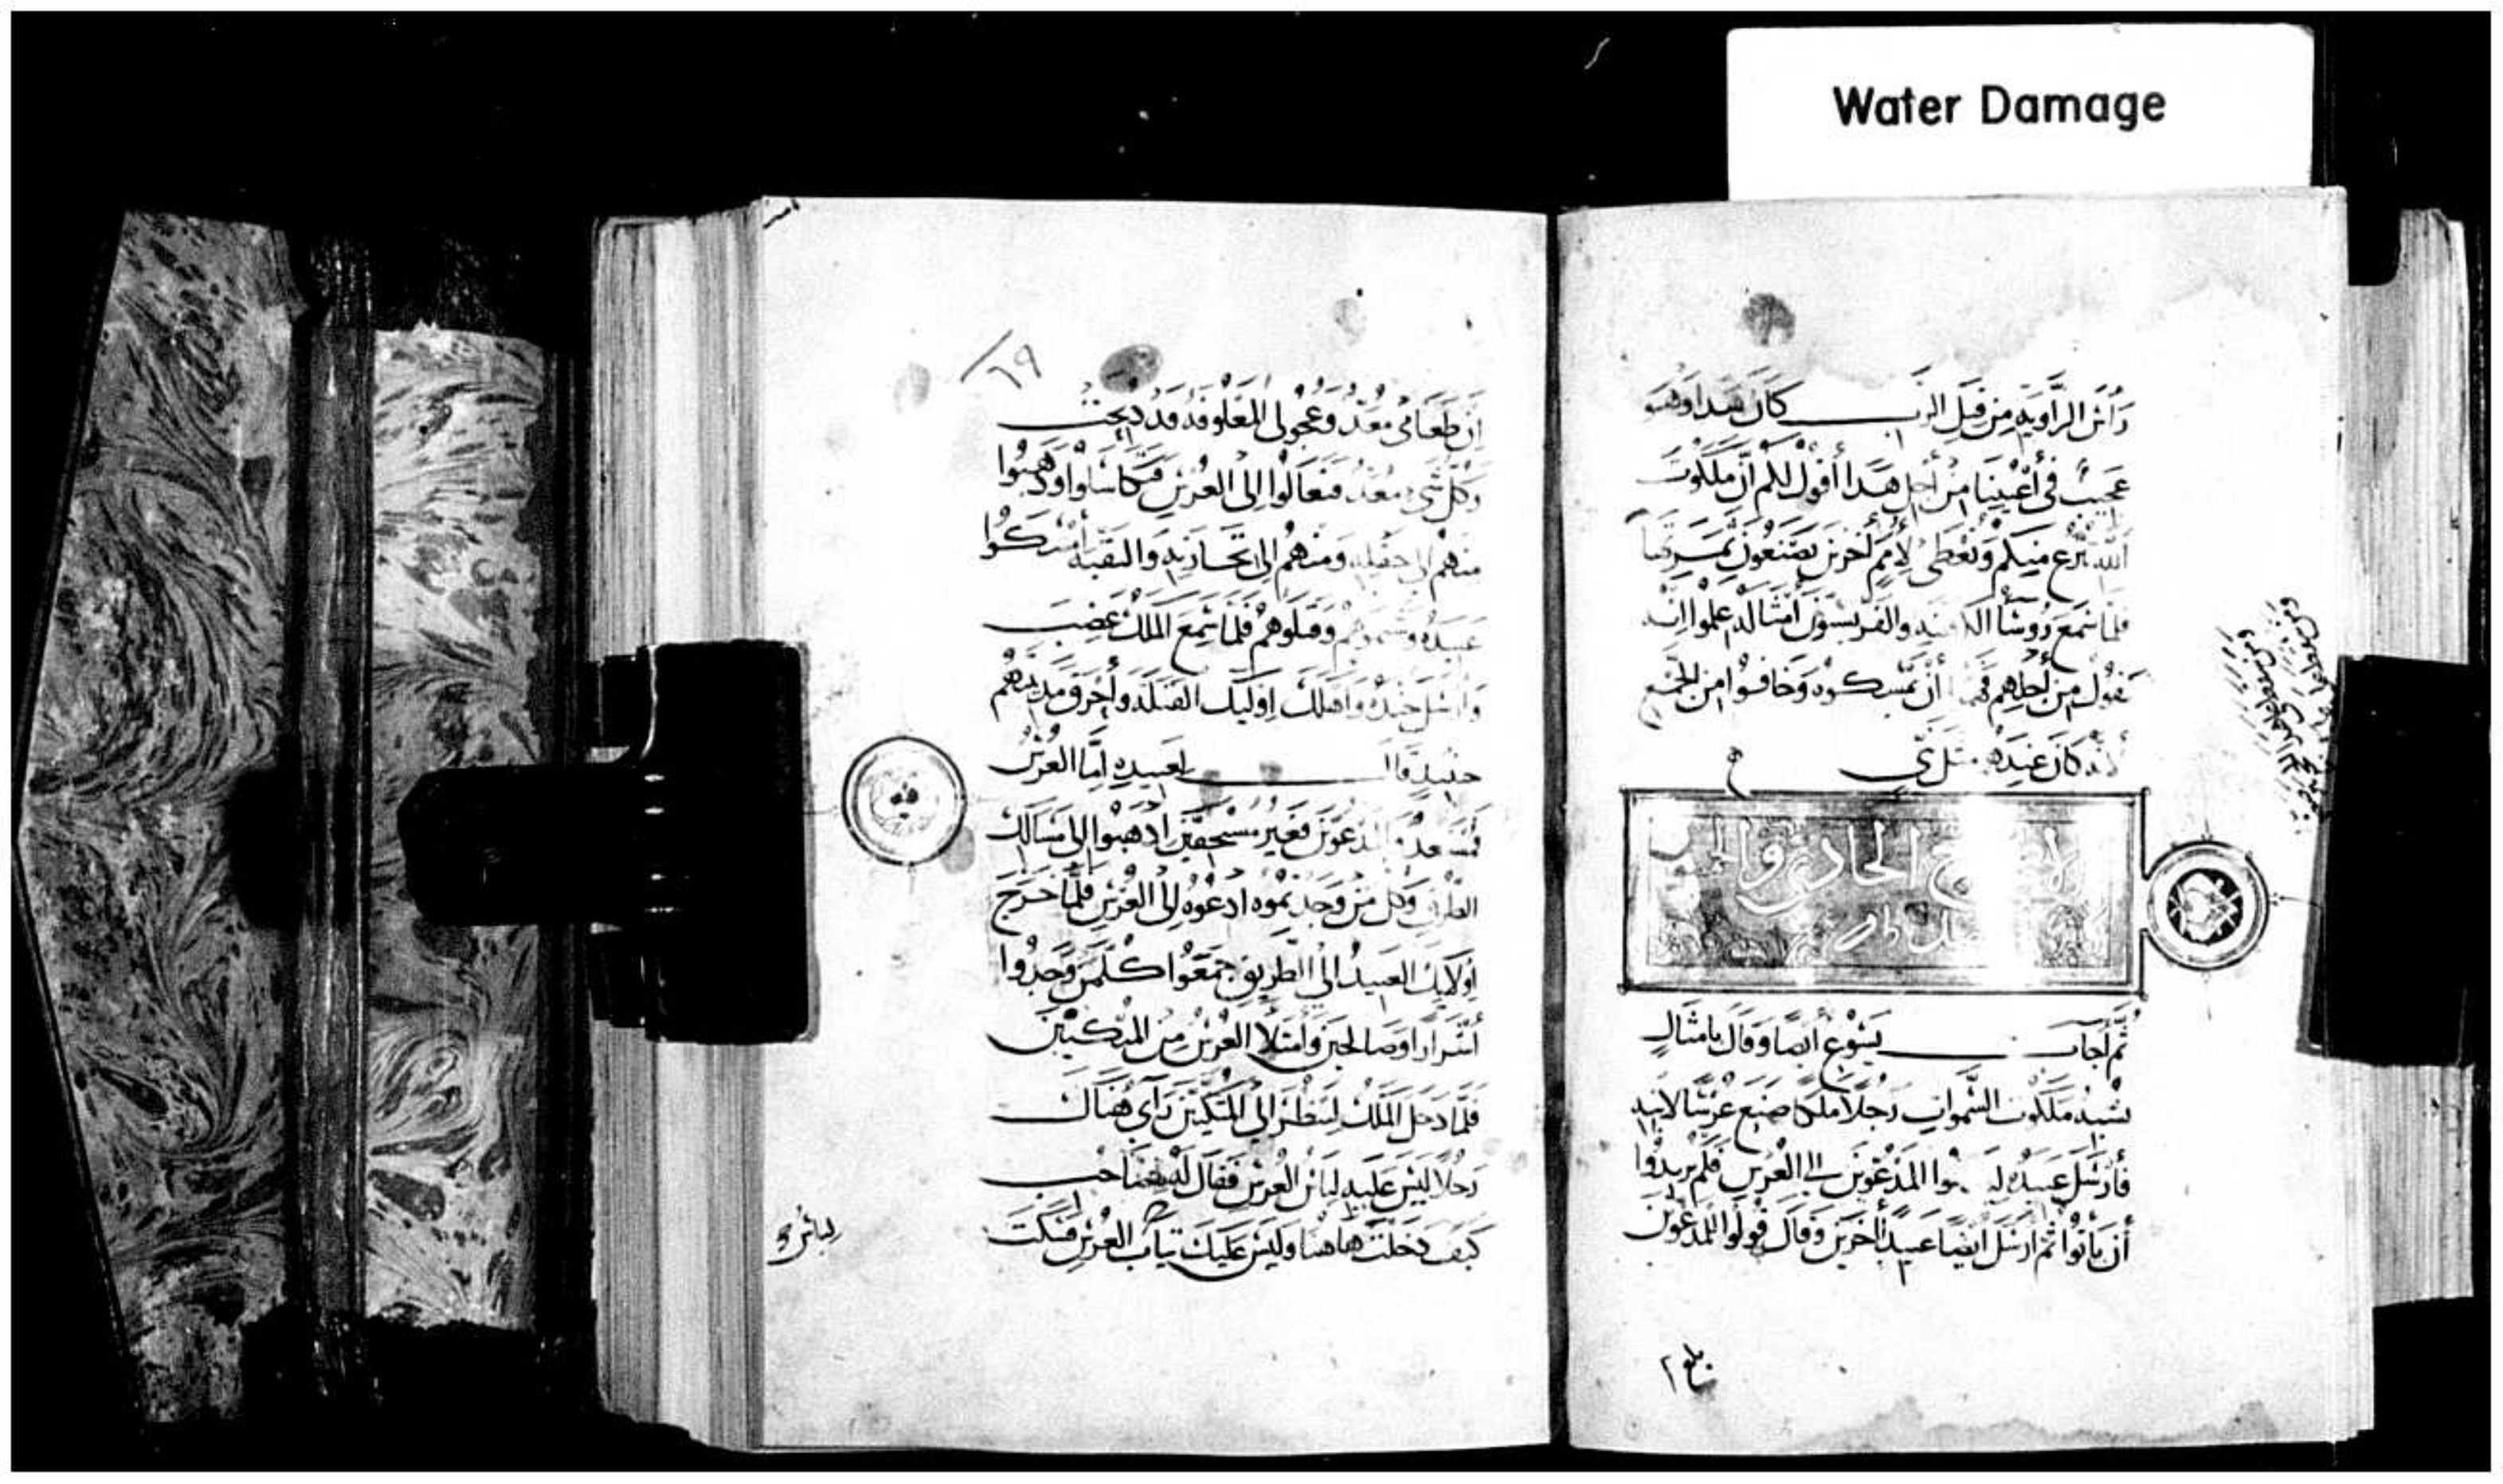 Water Damage
رأس الزاوية من قبل الرب كان هذا وهو
عجيب في أعيننا من أجل هذا أقول لكم إن ملكوت
الله ينزع منكم وتعطى لأمم أخرين يصنعون ثمرتها
فلما سمع رؤسأ الكهنة والفريسيون أمثاله علموا انه
يقول من أجلهم فهموا أن يمسكوه وخافوا من الجمع
لأنه كان عندهم مثل نبي
الاصحاح الحادي و
ثم أجاب يسوع أيضا وقال بامثال
تشبه ملكوت السموات رجلا ملكا صنع عرسا لابنه
فأرسل عبيده المدعوين الى العرس فلم يريدوا
أن يأتوا ثم ارسل أيضا عبيدا أخرين وقال قولوا للمدعوين
بلغ
٦٩
إن طعامي معد وعجولي المعلوفة قد ذبحت
وكل شيء معد فتعالوا إلى العرس فتكاسلوا وذهبوا
منهم الى حقله ومنهم إلى تجارته والبقية أمسكوا
عبيده وشتموهم وقتلوهم فلما سمع الملك غضب
وأرسل جنده واهلك اوليك القتلة وأحرق مدينتهم
حينيد قال لعبيده أما العرس
فمستعد والمدعوون فغير مستحقين اذهبوا إلى مسالك
الطرق وكل من وجدتموه ادعوه إلى العرس فلما خرج
اولايك العبيد الى الطريق جمعوا كلمن وجدوا
أشرارا وصالحين وأمتلا العرس من المتكيين
فلما دخل الملك لينظر إلى المتكيين رأى هناك
رجلا ليس عليه لباس العرس فقال له يا صاحب
كيف دخلت هاهنا وليس عليك ثياب العرس فسكت